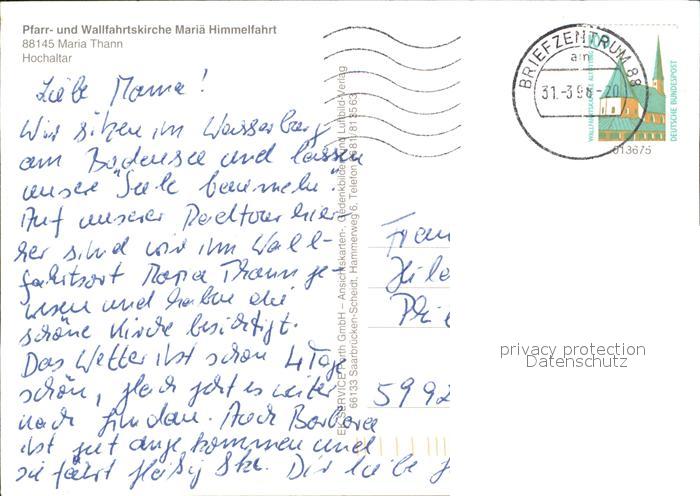 Pfarr- und Wallfahrtskirche Mariä Himmelfahrt
88145 Maria Thann
Hochaltar
Liebe Mama!
Wir sitzen im Wasserburg
am Bodensee und lassen
unsere "Seele baumeln".
Auf unserer Radtour hier-
her sind wir im Wall-
fahrtsort Maria Thann ge-
wesen und haben die
schöne Kirche besichtigt.
Das Wetter ist schon 4 Tage
schön, gleich geht es weiter
nach Lindau. Auch Barbara
ist gut angekommen und
sie fährt fleißig Ski. Dir liebe
EK-SERVICE Porth GmbH – Ansichtskarten-, Gedenkbilder- und Luftbild-Verlag
66133 Saarbrücken-Scheidt, Hammerweg 6, Telefon 0681/813563
BRIEFZENTRUM 88
am
31.-3.98-20
WALLFAHRTSKAPELLE ALTÖTTING
DEUTSCHE BUNDESPOST
013675
Frau
5992
privacy protection
Datenschutz